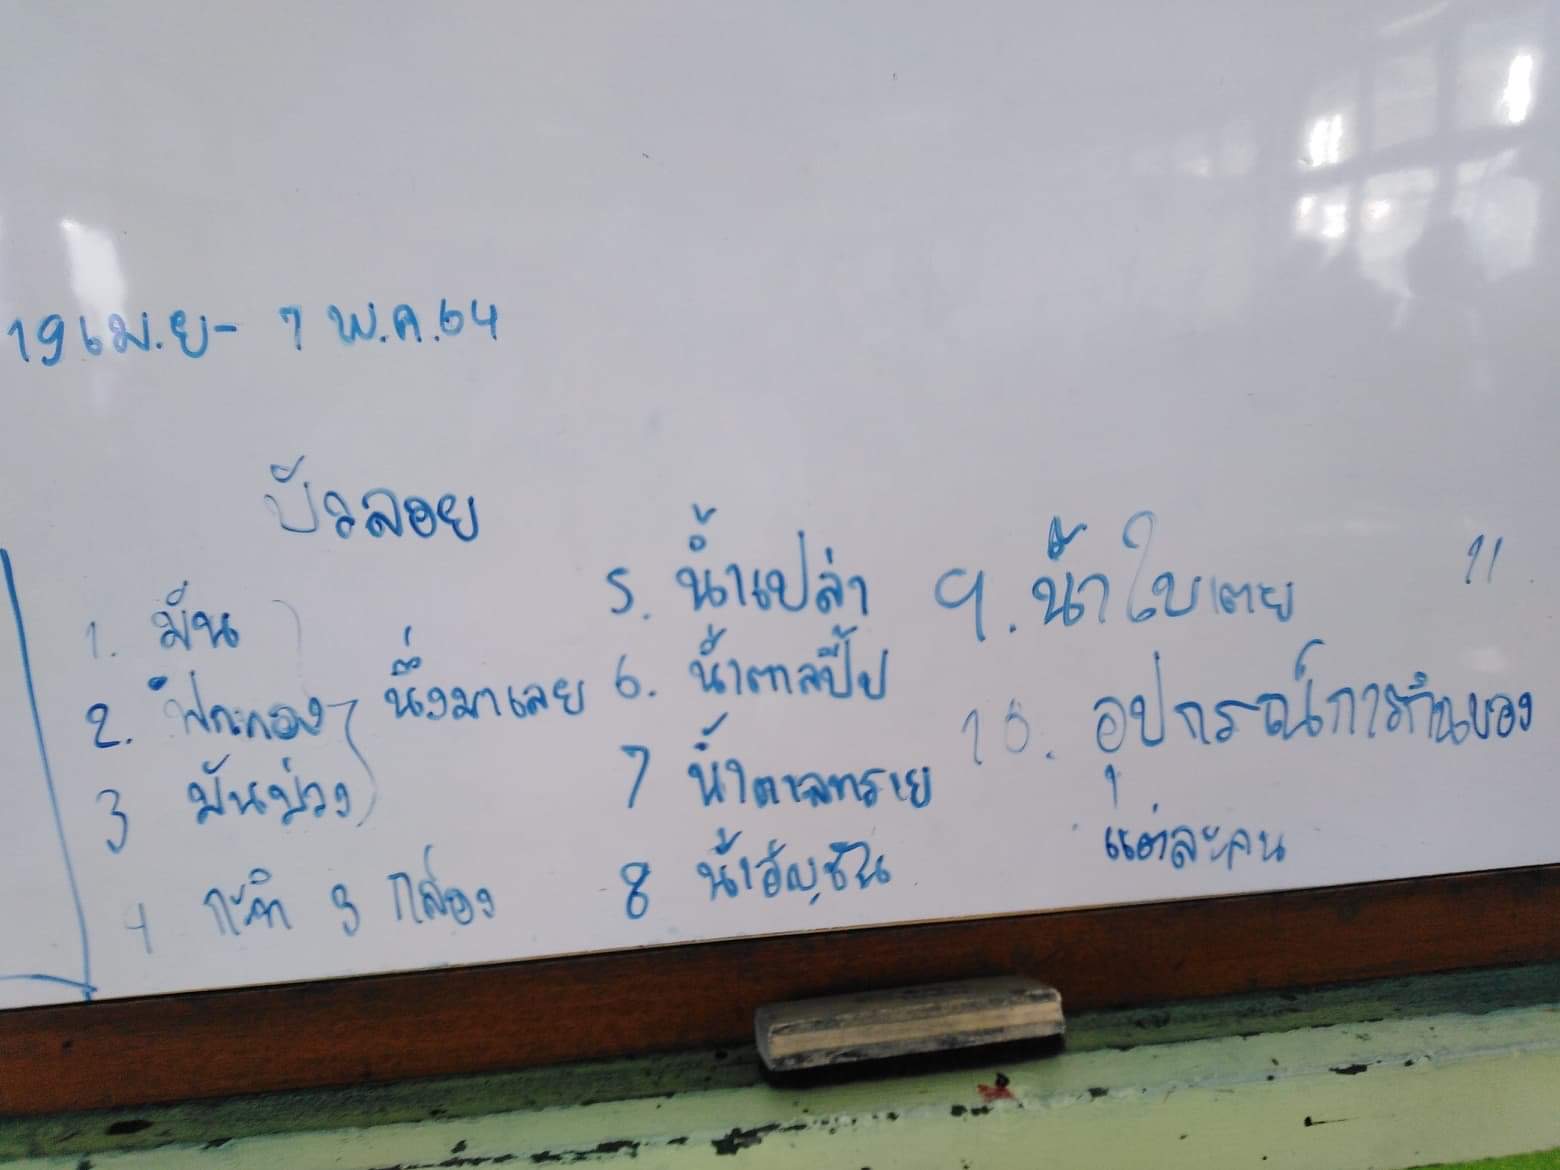 19 เม.ย - 7 พ.ค.64
บัวลอย
1. มัน
2. ฟักทอง นึ่งมาเลย
3 มันม่วง
4 กะทิ 3 กล่อง
5. น้ำเปล่า
6. น้ำตาลปี๊ป
7 น้ำตาลทราย
8 น้ำอัญชัน
9. น้ำใบเตย
10. อุปกรณ์การกินของ
แต่ละคน
11